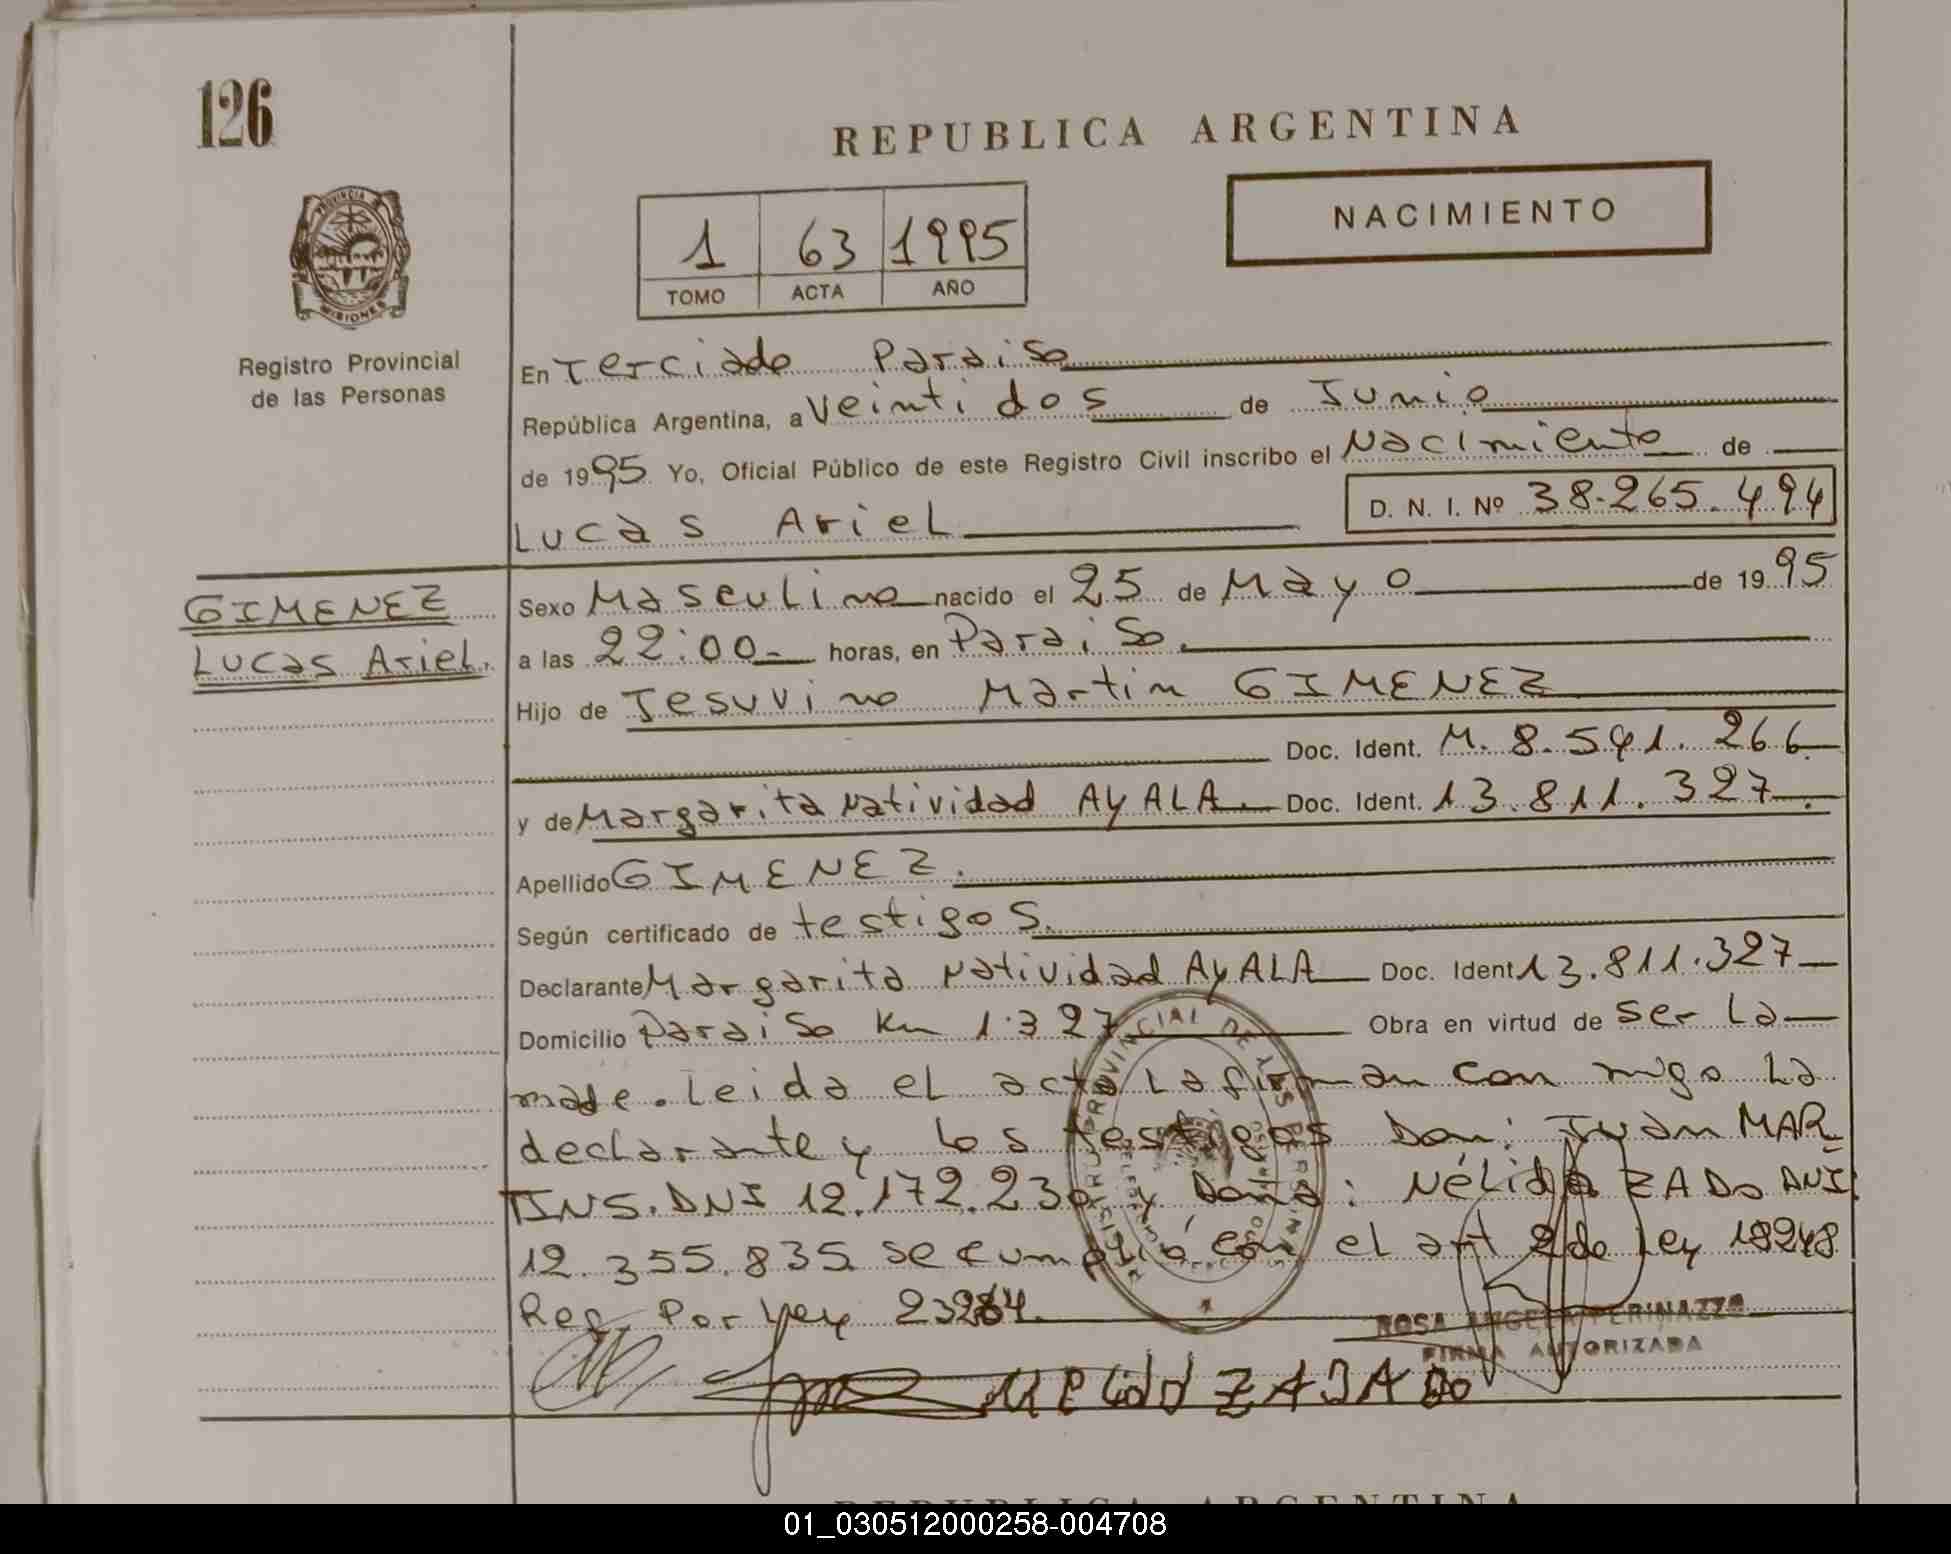 126
REPUBLICA ARGENTINA
NACIMIENTO
1 63 1995
TOMO ACTA AÑO
PROVINCIA DE
MISIONES
Registro Provincial
de las Personas
En Terciado Paraiso
República Argentina, a veintidos de Junio
de 1995 Yo, Oficial Público de este Registro Civil inscribo el Nacimiento de
Lucas Ariel D. N. I. Nº 38.265.494
GIMENEZ
Lucas Ariel.
Sexo Masculino nacido el 25 de Mayo de 1995
a las 22:00 horas, en Paraiso.
Hijo de Jesuvino Martin GIMENEZ
Doc. Ident. M. 8.541.266
y de Margarita Natividad AYALA. Doc. Ident. 13.811.327.
Apellido GIMENEZ.
Según certificado de testigos.
Declarante Margarita Natividad AYALA Doc. Ident 13.811.327
Domicilio Paraiso Km 1.327 Obra en virtud de ser La
made. Leida el acta La firman con migo La
declarante y Los testigos Don: Juan MAR-
TINS. DNI 12.172.230 y Doña: Nélida ZADO DNI
12.355.835 se cumplió con el art 2 de Ley 18248
Reg. Por Ley 23264.
ROSA ANGELA PERINAZZO
FIRMA AUTORIZADA
REPUBLICA ARGENTINA
01_030512000258-004708